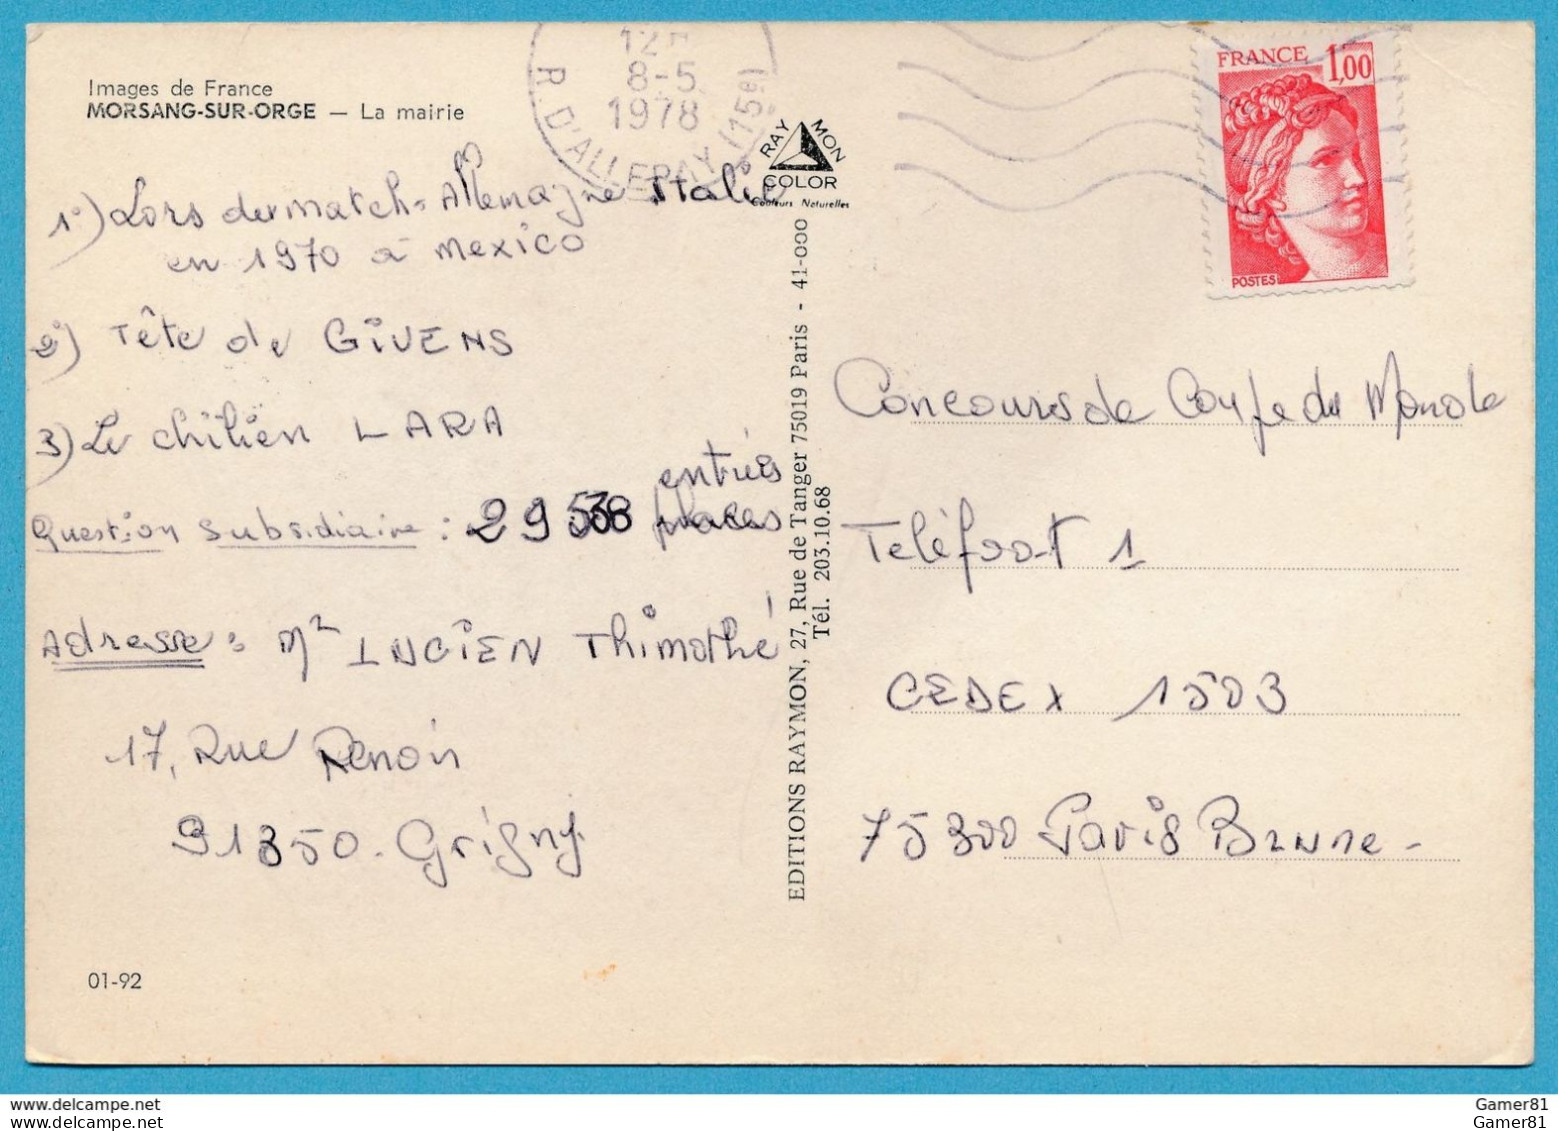 Images de France
MORSANG-SUR-ORGE — La mairie
12H
8-5
1978
R. D'ALLERAY (15e)
RAYMON
COLOR
Couleurs Naturelles
FRANCE 1,00
POSTES
1°) Lors du match Allemagne Italie
en 1970 à Mexico
2°) Tête de GIVENS
3) Le chilien LARA
Question subsidiaire : 29 538 entrées
places
Adresse : Mr LUCIEN Thimothé
17, Rue Renoir
91350 - Grigny
01-92
EDITIONS RAYMON, 27, Rue de Tanger 75019 Paris - 41-000
Tél. 203.10.68
Concours de Coupe du Monde
Teléfoot 1
CEDEX 1503
75300 Paris Brune -
www.delcampe.net
Gamer81
Gamer81